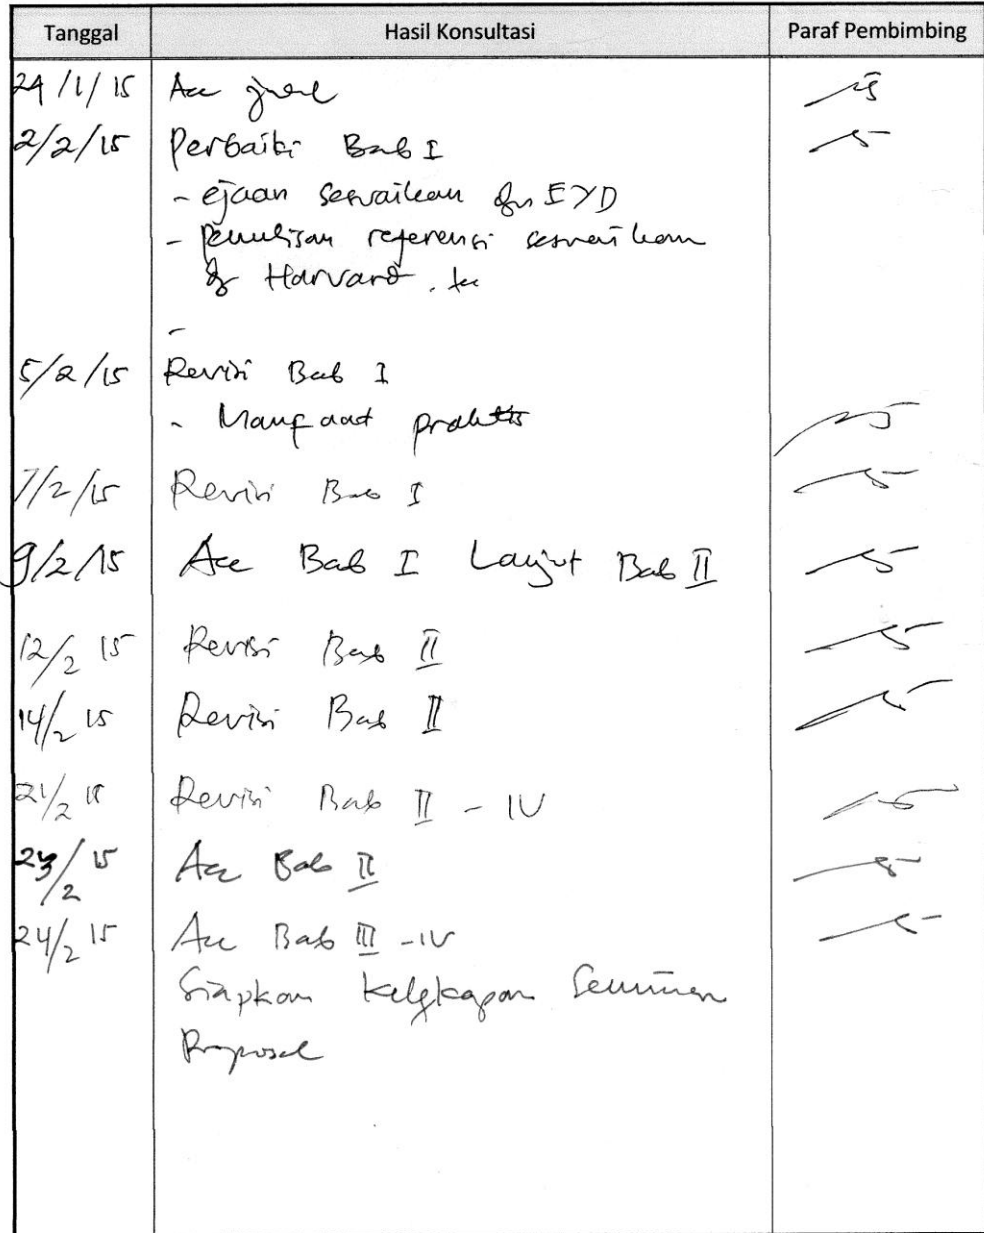 Tanggal Hasil Konsultasi Paraf Pembimbing
24/1/15 Acc
2/2/15 Perbaiki Bab I
- ejaan sesuaikan dgn EYD
- penulisan referensi sesuaikan
Harvard.
-
5/2/15 Revisi Bab I
- Manfaat praktis
7/2/15 Revisi Bab I
9/2/15 Acc Bab I Lanjut Bab II
12/2 15 Revisi Bab II
14/2 15 Revisi Bab II
21/2 15 Revisi Bab II - IV
23/2 15 Acc Bab II
24/2 15 Acc Bab III - IV
Siapkan kelgkapan Seminar
Proposal